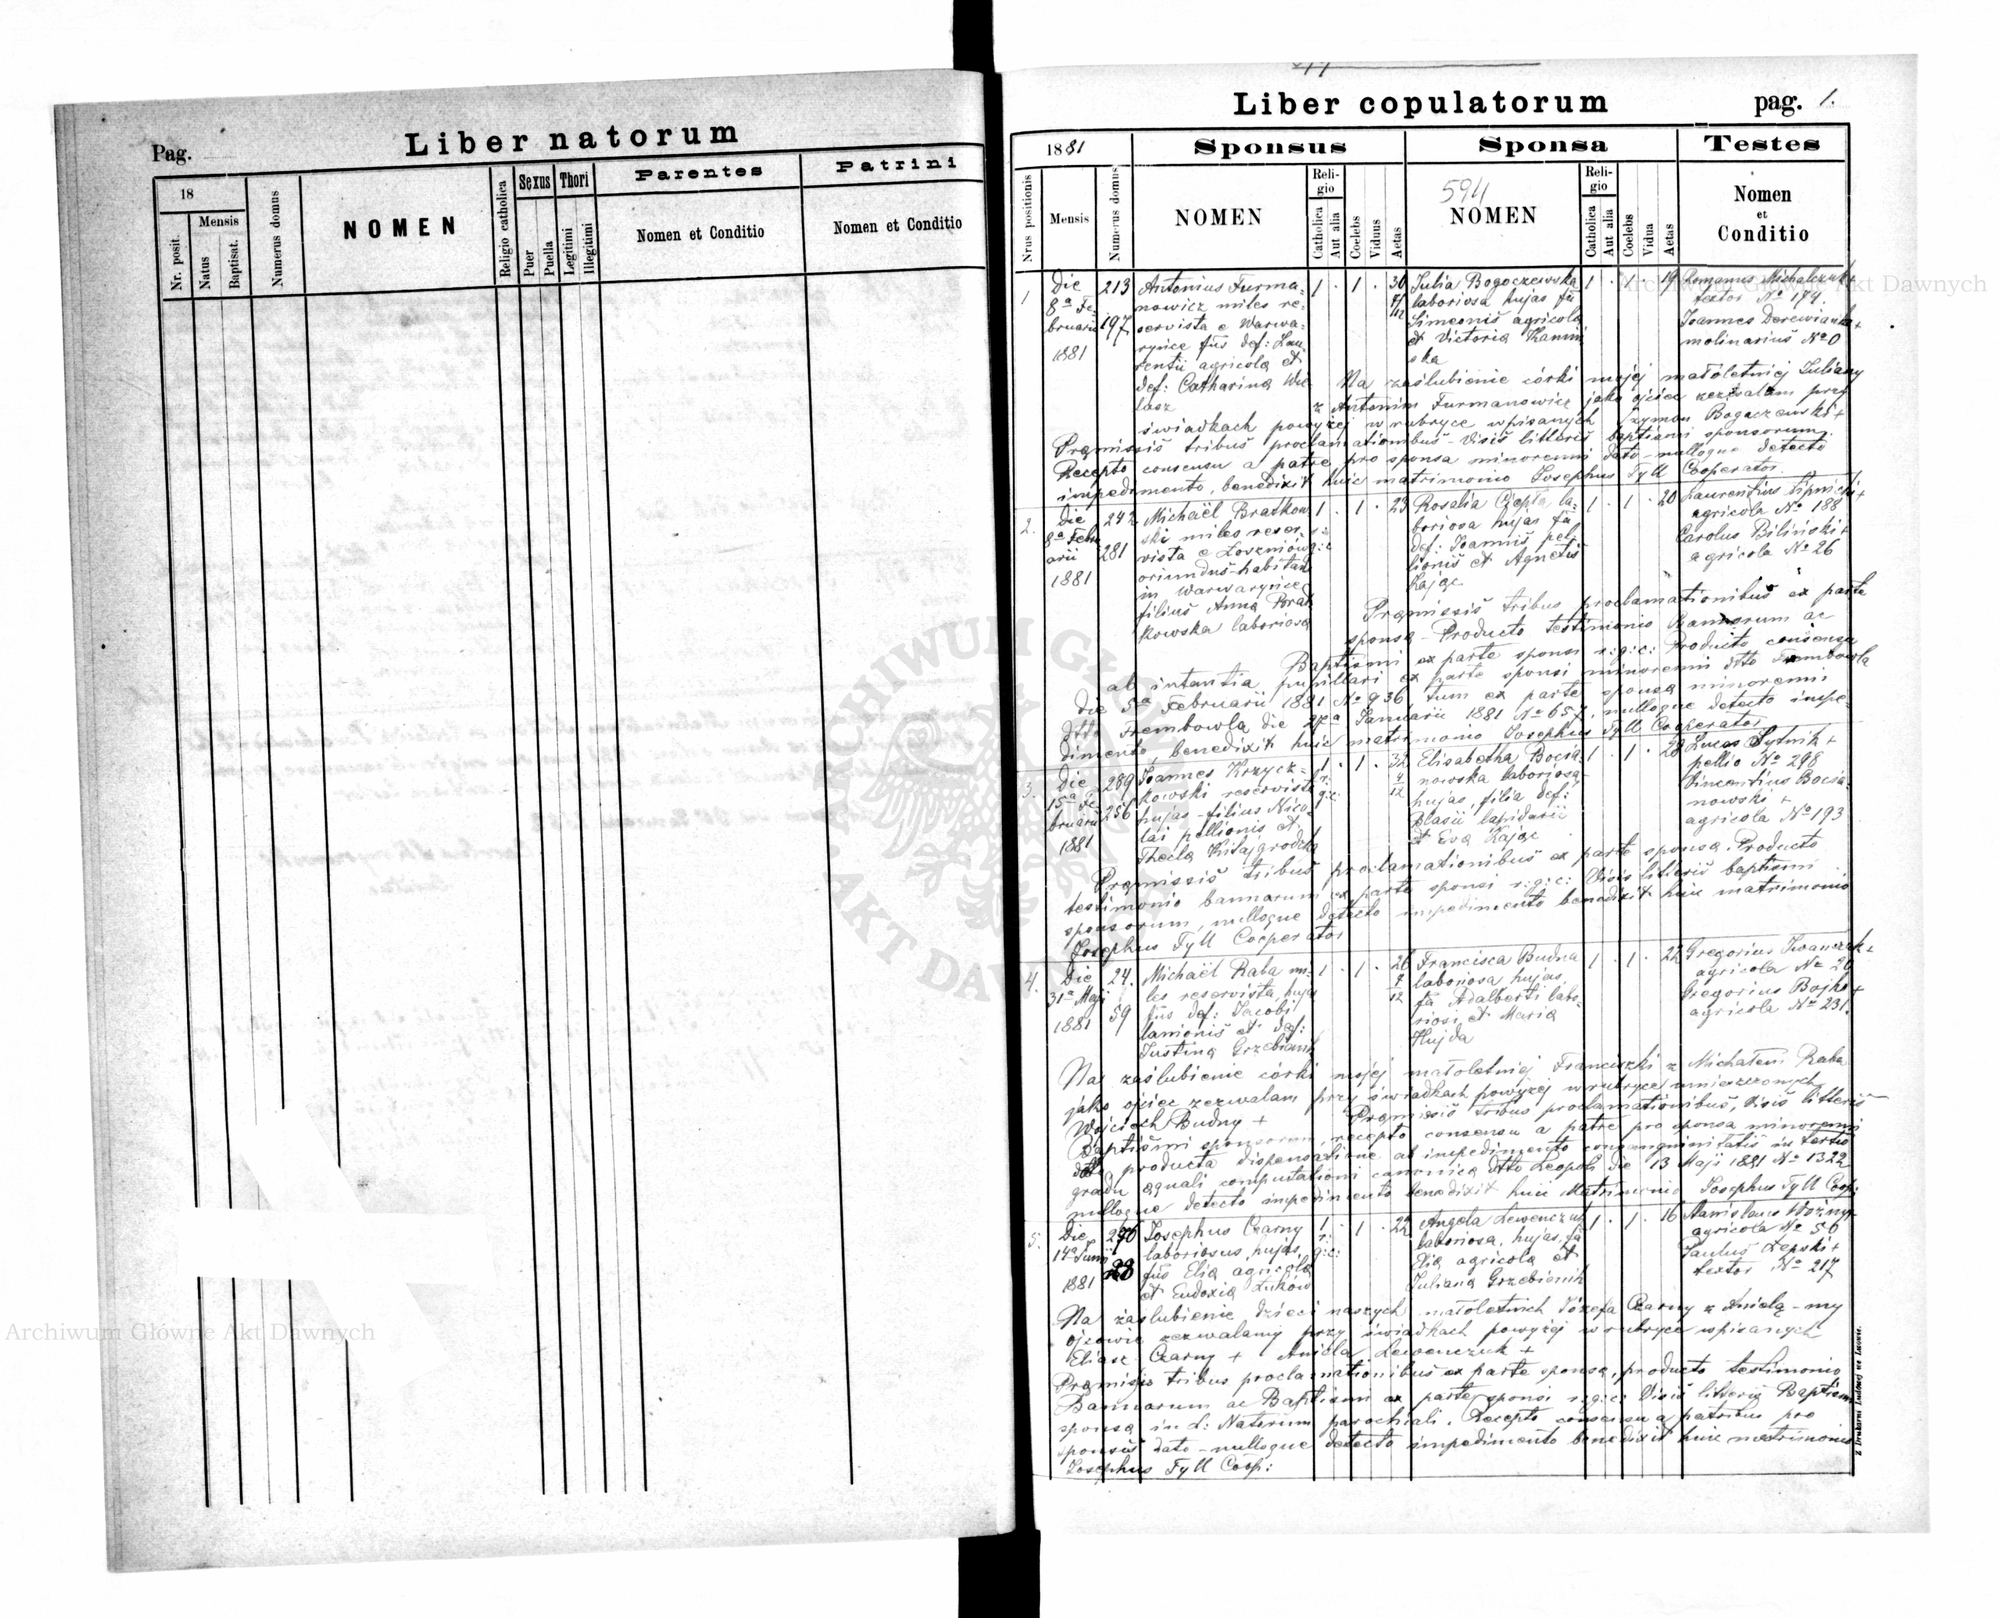 Pag.
Liber natorum
18
Mensis
Nr. posit.
Natus
Baptisat.
Numerus domus
NOMEN
Religio catholica
Sexus
Puer
Puella
Thori
Legitimi
Illegitimi
Parentes
Nomen et Conditio
Patrini
Nomen et Conditio
Liber copulatorum
pag. 1.
1881
Sponsus
Sponsa
Testes
Nrus positionis
Mensis
Numerus domus
NOMEN
Reli-
gio
Catholica
Aut alia
Coelebs
Viduus
Aetas
594
NOMEN
Reli-
gio
Catholica
Aut alia
Coelebs
Vidua
Aetas
Nomen
et
Conditio
1
Die
8ª Fe-
bruarii
1881
213
197
Antonius Furma-
nowicz miles re-
servista e Warwa-
ryńce fius def: Lau-
rentii agricola et
def: Catharina
1 . 1 . 30
7/12
Julia Bogaczewska
laboriosa hujas fa
Simeonis agricola
et Victoria Kamin
ska
1 . 1 . 19
Romanus Michalczuk +
textor Nº 174.
Joannes Derewianka +
molinarius Nº 0
Na zaślubienie córki mojej małoletniej Juliany
z Antonim Furmanowicz jako ojciec zezwalam przy
świadkach powyżej w rubryce wpisanych Szymon Bogaczewski +
Præmissis tribus proclamationibus visis litteris baptismi sponsorum
Recepto consensu a patre pro sponsa minorenni dato - nulloque detecto
impedimento, benedixit huic matrimonio Josephus Tyll Cooperator.
2.
Die
8ª Febru
arii
1881
242
281
Michaël Bratkow
ski miles reser-
vista e Łoszniów
oriundus habitans
in Warwaryńce
filius Anna Brat
kowska laboriosa
1 . 1 . 23
r:
g:c
Rosalia Czepta la-
boriosa hujas fa
def: Joannis pel-
lionis et Agnetis
Zając
1 . 1 . 20
Laurentius Lipnicki +
agricola Nº 188
Carolus Biliński +
agricola Nº 26
Præmissis tribus proclamationibus ex parte
sponsa - Producto testimonio Bannorum ac
Baptismi ex parte sponsi r:g:c: Producto consensu
ab intantia pupillari ex parte sponsi minorenni dtto Trembowla
die 5ª Februarii 1881 Nº 936, tum ex parte sponsa minorenni
dtto Trembowla die 27ª Januarii 1881 Nº 657, nulloque detecto impe-
dimento, benedixit huic matrimonio Josephus Tyll Cooperator
3.
Die
15ª Fe-
bruarii
1881
289
256
Joannes Krzycz-
kowski reservista
hujas - filius Nico-
lai pellionis et
Thecla Kitajgrodzka
1 . 1 . 32
r:
g:c:
Elisabetha Bocia
nowska laboriosa
hujas, filia def:
Blasii lapidarii
et Eva Zając
1 . 1 . 28
Lucas Sytnik +
pellio Nº 298
Vincentius Bocia-
nowski +
agricola Nº 193
Præmissis tribus proclamationibus ex parte sponsa. Producto
testimonio bannorum ex parte sponsi r:g:c: Visis litteris baptismi
sponsorum, nulloque detecto impedimento benedixit huic matrimonio
Josephus Tyll Cooperator
4.
Die
31ª Maji
1881
24.
59
Michaël Raba mi-
les reservista hujas
fius def: Jacobi
lanionis et def:
Justina Grzebienik
1 . 1 . 26
Francisca Budna
laboriosa hujas,
fa Adalberti labo-
riosi et Maria
Hujda
1 . 1 . 22
Gregorius Iwanczuk +
agricola Nº 20
Gregorius Bojko +
agricola Nº 231.
Na zaślubienie córki mojej małoletniej Franciszki z Michałem Raba
jako ojciec zezwalam przy świadkach powyżej w rubryce umieszczonych
Wojciech Budny + Præmissis tribus proclamationibus, Visis litteris
Baptismi sponsorum, recepto consensu a patre pro sponsa minorenni
dato producta dispensatione ab impedimento consanguinitatis in tertio
gradu æquali computationi canonica dtto Leopoli die 13 Maji 1881 Nº 1322
nulloque detecto impedimento benedixit huic Matrimonio Josephus Tyll Coop:
5.
Die
14ª Junii
1881
270
28
Josephus Czarny
laboriosus hujas,
fius Elia agricola
et Eudoxia Żuków
1 . 1 . 22
r:
g:c:
Angela Lewenczuk
laboriosa, hujas, fa
Elia agricola et
Juliana Grzebienik
1 . 1 . 16
Stanislaus Woźny +
agricola Nº 56
Paulus Lepski +
textor Nº 217
Na zaślubienie dzieci naszych małoletnich Józefa Czarny z Anielą - my
ojcowie zezwalamy przy świadkach powyżej w rubryce wpisanych
Eliasz Czarny + Aniela Lewenczuk +
Præmissis tribus proclamationibus ex parte sponsa, producto testimonio
Bannorum ac Baptismi ex parte sponsi r:g:c: Visis litteris Baptismi
sponsa in L: Natorum parochiali. Recepto consensu a patribus pro
sponsis dato - nulloque detecto impedimento benedixit huic matrimonio
Josephus Tyll Coop:
Z Drukarni Ludowej we Lwowie.
Archiwum Główne Akt Dawnych
Archiwum Główne Akt Dawnych
ARCHIWUM GŁÓWNE AKT DAWNYCH